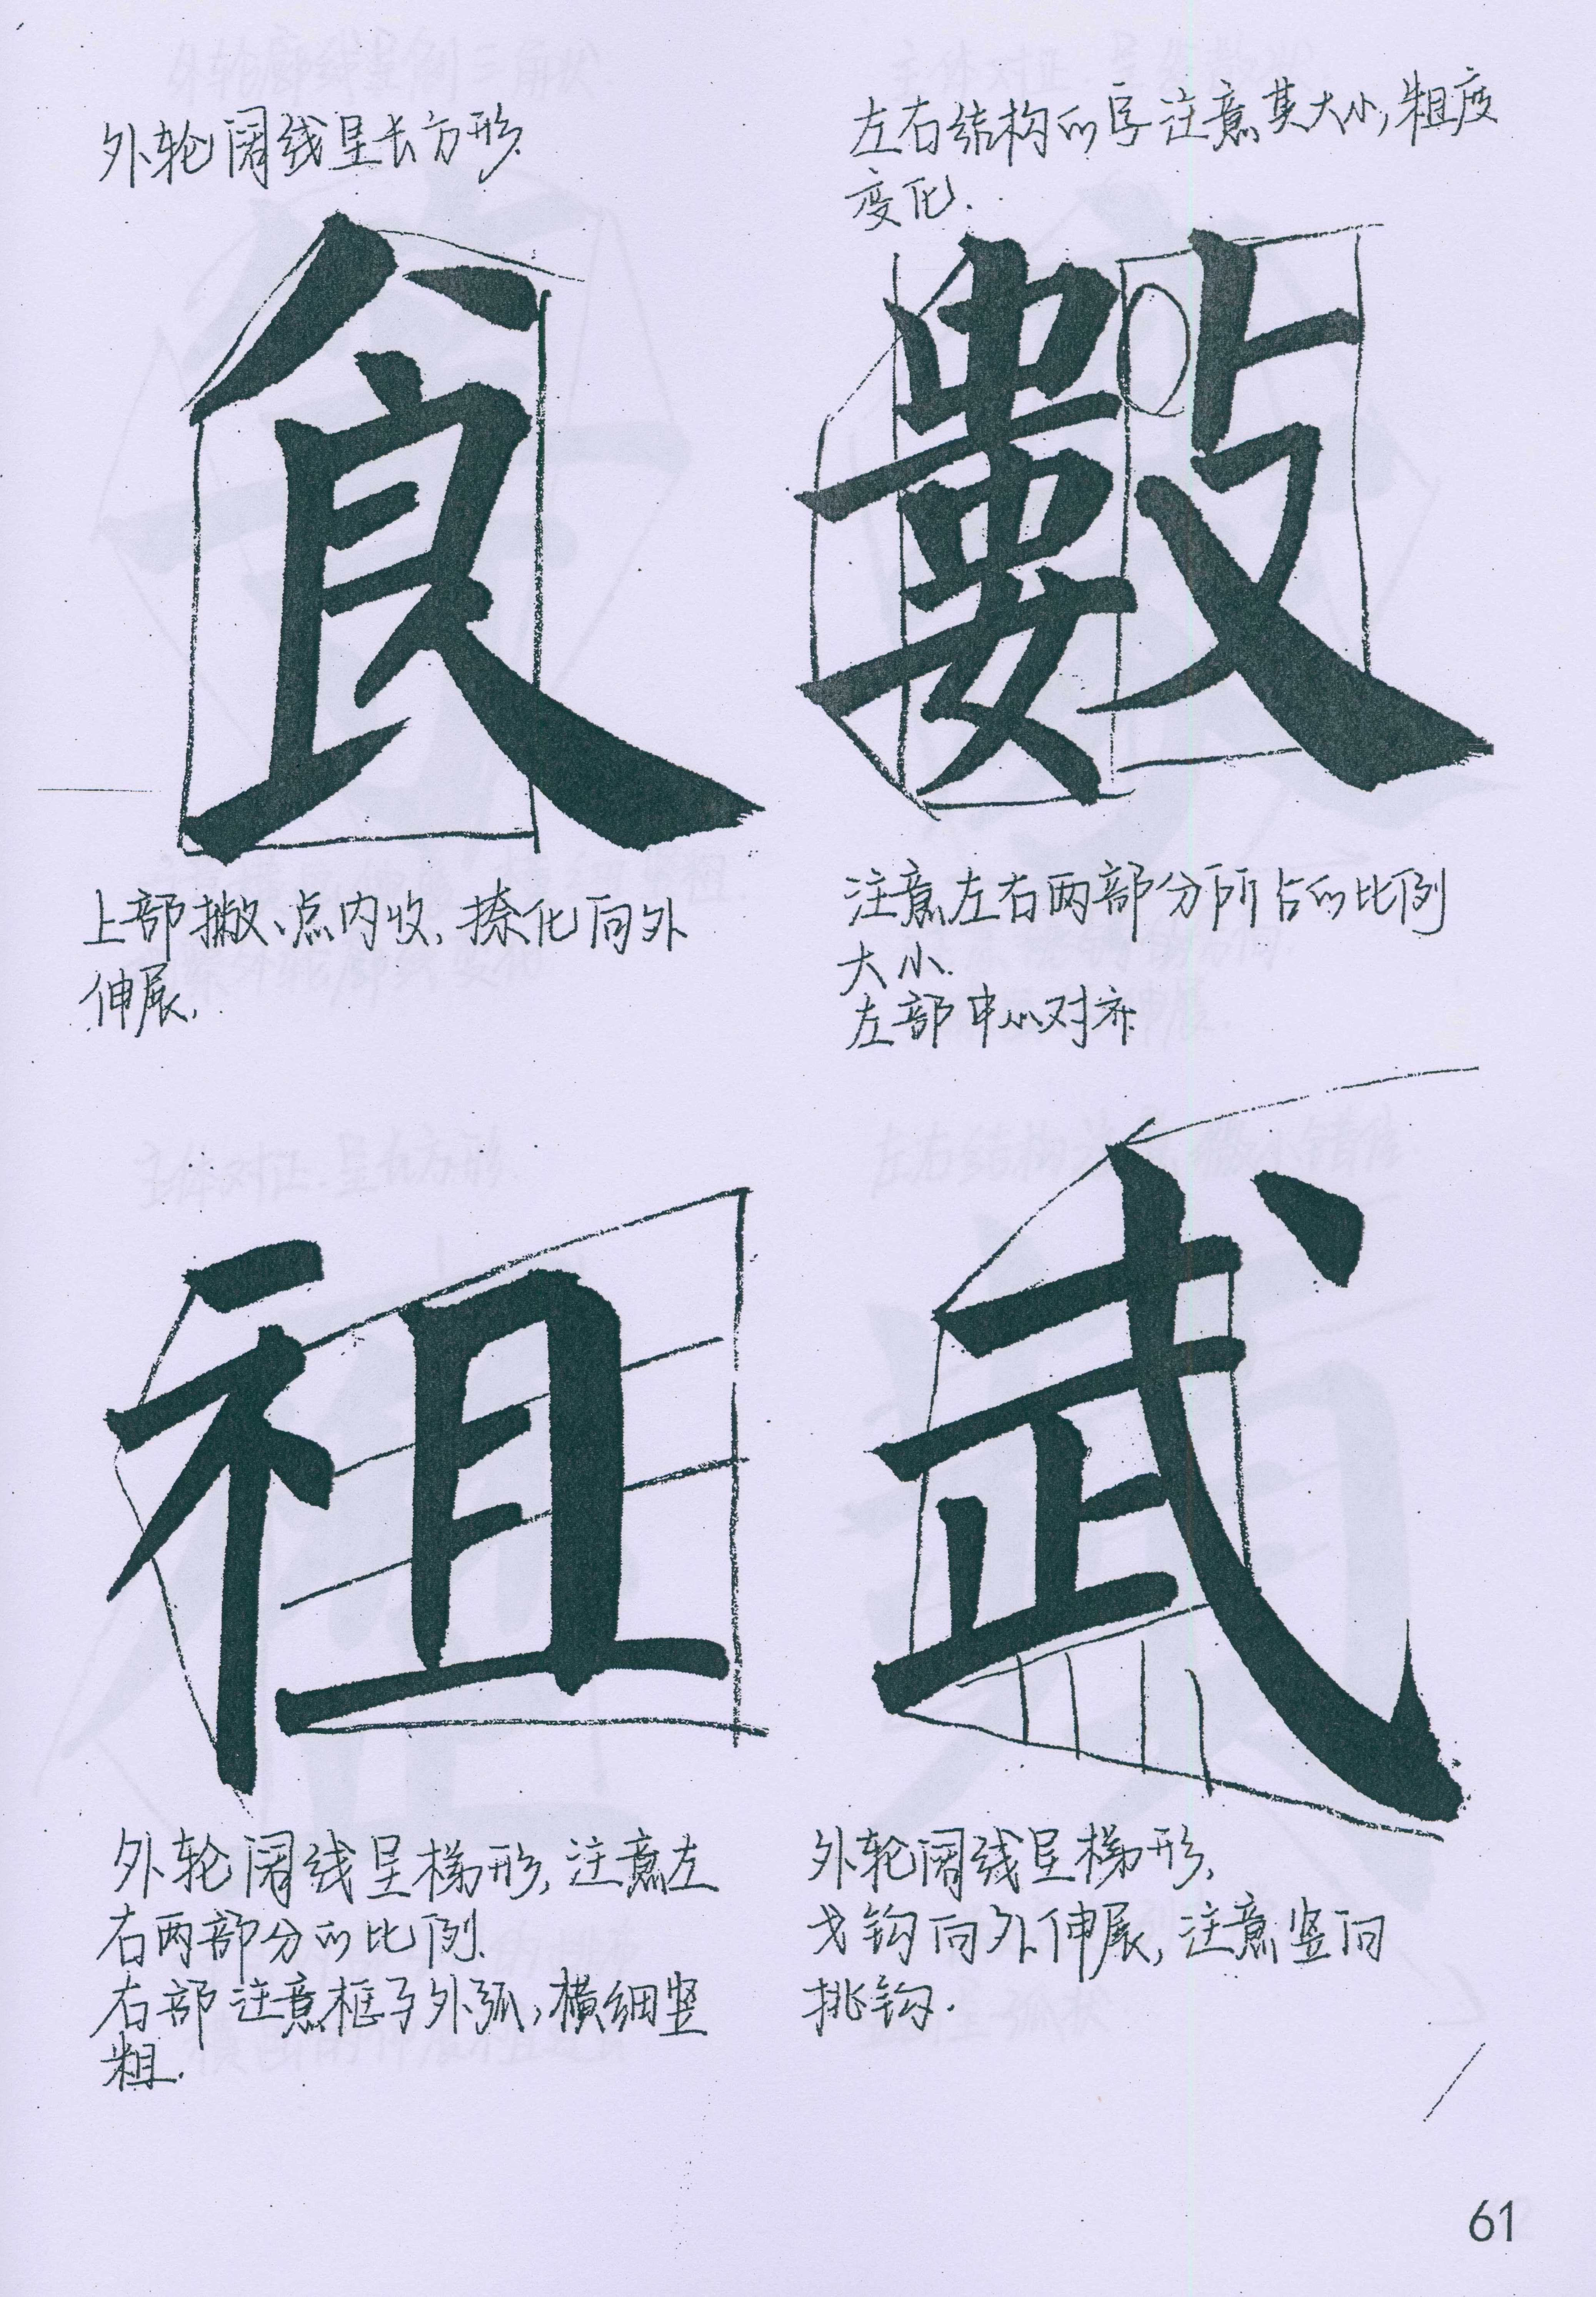 外轮阔线呈长方形.
食
上部撇、点内收,捺化向外
伸展.
左右结构的字注意其大小,粗度
变化.
數
注意左右两部分所占的比例
大小.
左部中心对齐
祖
外轮阔线呈梯形,注意左
右两部分的比例.
右部注意框子外弧,横细竖
粗.
武
外轮阔线呈梯形,
戈钩向外伸展,注意竖向
挑钩.
61